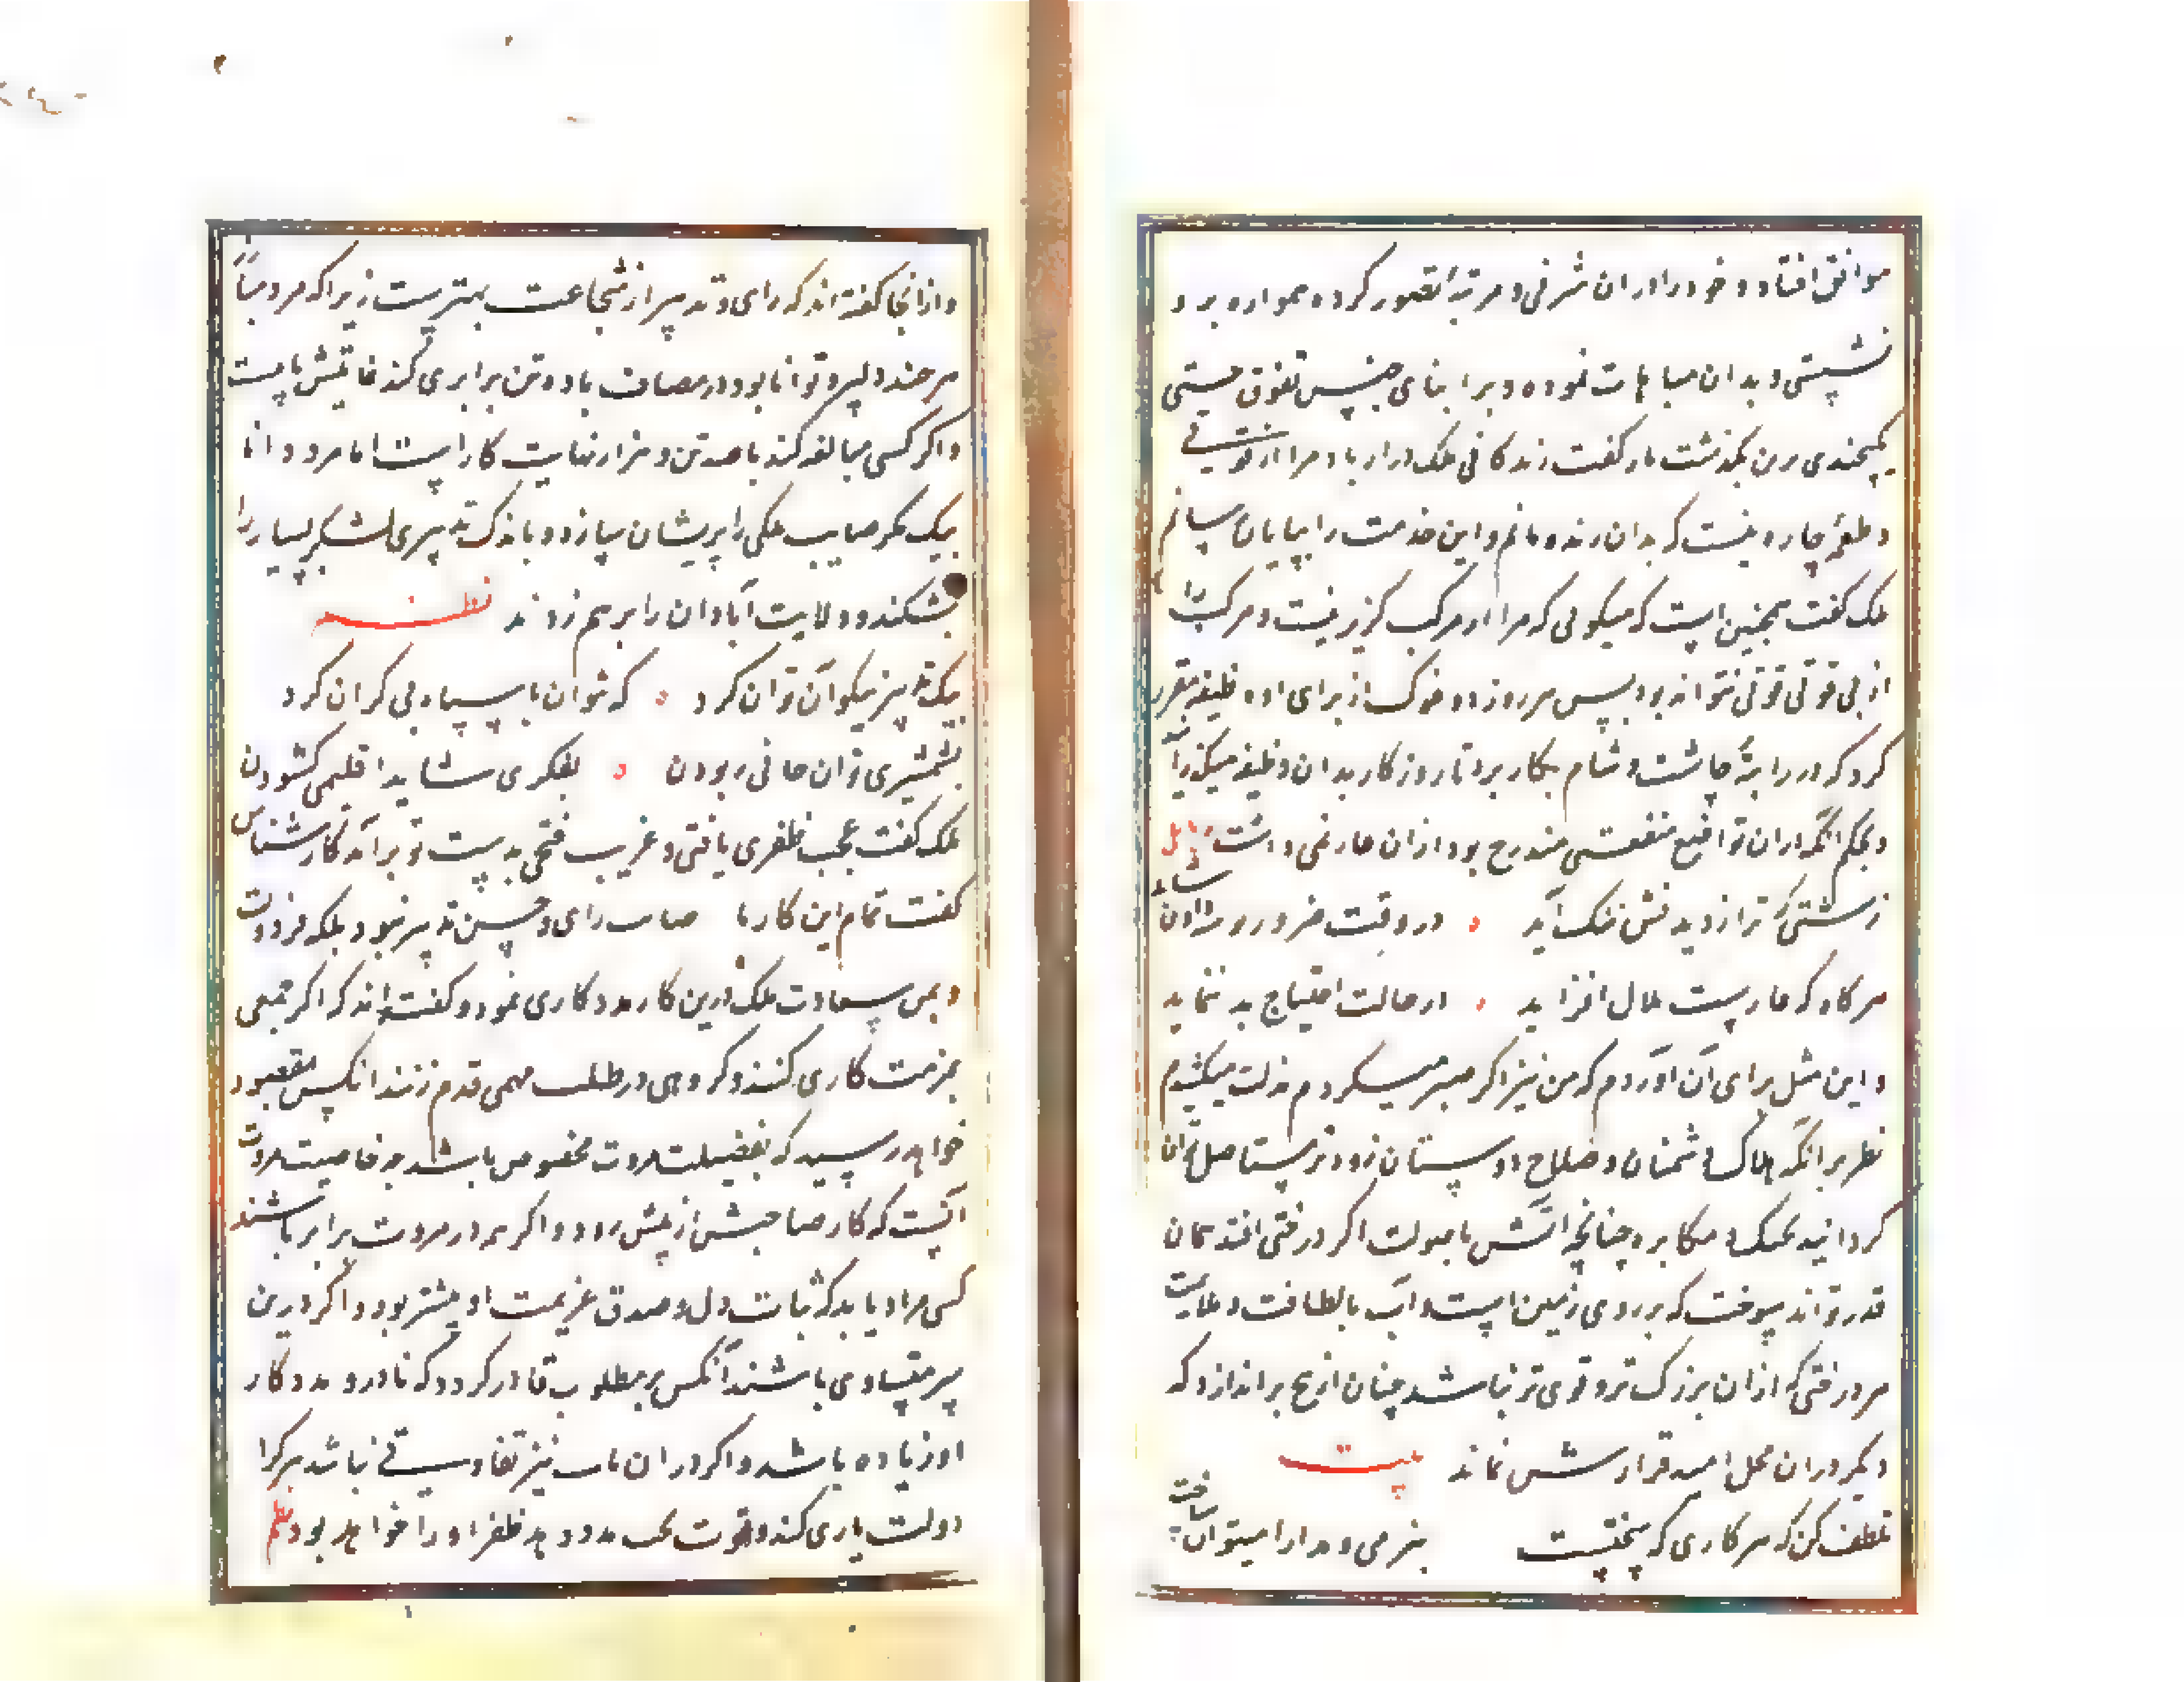 موافق افتاد و خود را در ان شرفی و مرتبهٔ تصور کرده همواره بر و
نشستی و بدان مباهات نموده و بر ابنای جنس تفوق جستی
یکچندی برین بگذشت مار گفت زندگانی ملک دراز باد مرا از قوتی
و طعمهٔ چاره نیست که بدان زنده مانم و این خدمت را بپایان رسانم
ملک گفت همچنین است که میگوئی که مرا از مرکب گزیر نیست و مرکب را
از بی قوتی قوتی نتواند بود پس هر روز دو غوک از برای او وظیفه مقرر
کرد که در راتبهٔ چاشت و شام بکار برد تا روزگار بدان وظیفه میگذرانید
و بحکم انکه در ان تواضع منفعتی مندرج بود از ان عار نمی داشت
زشتی که ترا ز دیدنش ننک آید در وقت ضرورو
هر گاه که عاریست ملال افزاید در حالت احتیاج بد ننماید
و این مثل برای آن آوردم که من نیز اگر صبر میکردم و مذلت میکشیدم
نظر بر آنکه هلاک دشمنان و صلاح دوستان زودتر مستاصل توان
گردانید بجنگ و مکابره چنانچه آتش با صولت اگر در درختی افتد همان
قدر تواند سوخت که بر روی زمین است و آب با لطافت و ملایمت
هر درختی که از ان بزرگ تر و قوی تر نباشد چنان از بیخ براندازد که
دیگر در ان محل امید قرارش نماند بیت
تلطف کن که هر کاری که سختست بنرمی و مدارا میتوان ساخت
و از انجا گفته اند که رای و تدبیر از شجاعت بهتر است زیرا که مرد مبارز
هر چند دلیر و توانا بود در مصاف با ده تن برابری کند غایتش با بیست
و اگر کسی مبالغه کند با صد تن و هزار نهایت کار است اما مرد دانا
بیک فکر صایب ملکی را پریشان سازد و باندک تدبیری لشکر بسیار را
بشکند و ولایت آبادان را برهم زند نظم
بیک تدبیر نیکو آن توان کرد که نتوان با سپاه بی کران کرد
بشمشیری توان جانی ربودن بفکری شاید اقلیمی گشودن
ملک گفت عجب ظفری یافتی و غریب فتحی بدست تو برآمد کارشناس
گفت تمام این کارها رای و حسن تدبیر نبود بلکه فر دولت
و یمن سعادت ملک درین کار مددکاری نمود و گفته اند که اگر جمعی
عزیمت کاری کنند و گروهی در طلب مهمی قدم زنند انکس بمقصود
خواهد رسید که بفضیلت مروت مخصوص باشد چه خاصیت مروت
آنست که کار صاحبش از پیش رود و اگر همه در مروت برابر باشند
کسی مراد یابد که ثبات دل و صدق عزیمت او بیشتر بود و اگر درین
هر متساوی باشند آنکس بر مطلوب قادر گردد که ناصر و مددکار
او زیاده باشد و اگر در ان باب نیز تفاوتی نباشد هر کرا
دولت یاری کند و قوت بخت مدد دهد ظفر او را خواهد بود نظم